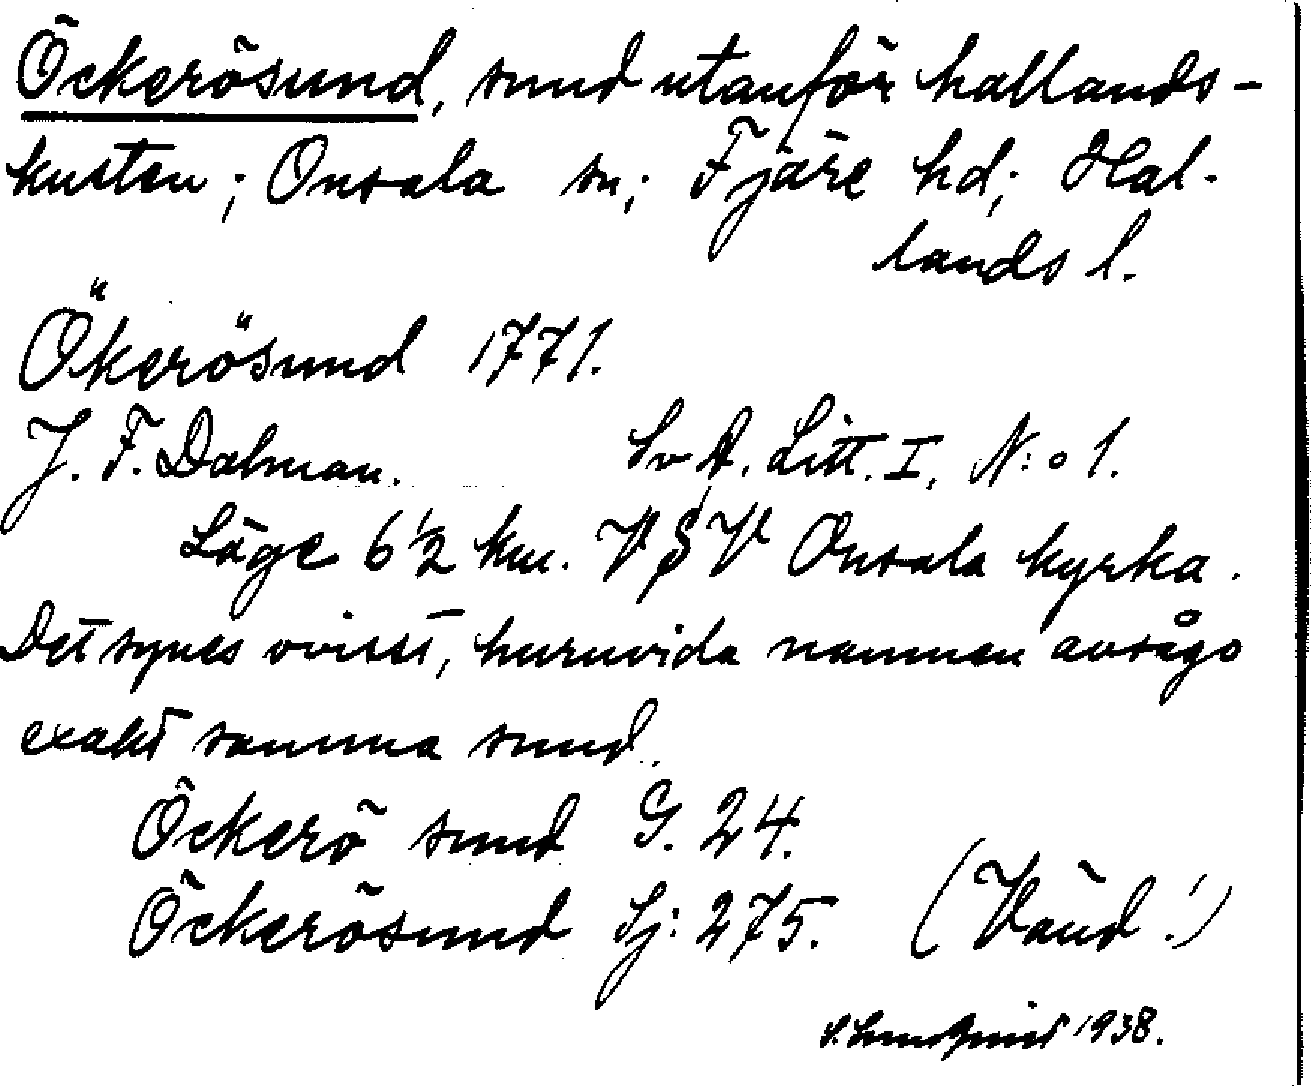 Öckerösund, sund utanför hallands-
kusten; Onsala sn; Fjäre hd; Hal-
lands l.
Ökerösund 1771.
J. F. Dalman. Sv A. Litt. I, N:o 1.
Läge 6 1/2 km. V S V Onsala kyrka.
Det synes ovisst, huruvida namnen avsågo
exakt samma sund.
Öckerö sund G. 24.
Öckerösund Sj: 275. (Vänd!)
Lundqvist 1938.